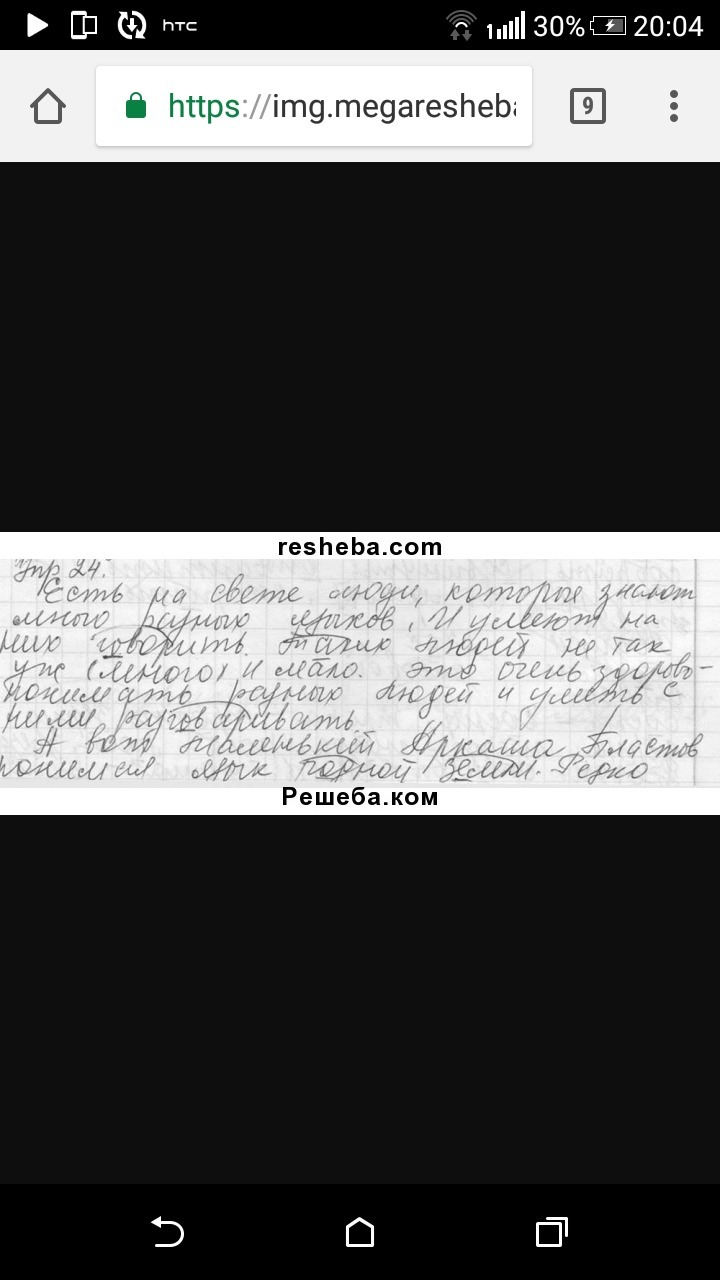 hTC
30%
20:04
https://img.megaresheba
9
resheba.com
Упр 24.
Есть на свете люди, которые знают
много разных языков. И умеют на
них говорить. Таких людей не так
уж (много) и мало. Это очень здорово-
понимать разных людей и уметь с
ними разговаривать.
А вот маленький Аркаша Пластов
понимал язык родной земли. Редко
Решеба.ком